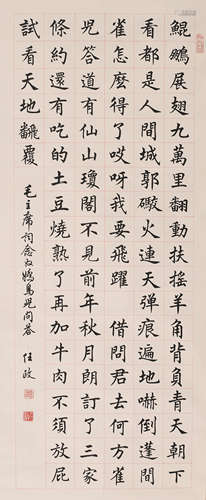 鯤鵬展翅九萬里翻動扶搖羊角背負青天朝下
看都是人間城郭礮火連天彈痕遍地嚇倒蓬間
雀怎麽得了哎呀我要飛躍 借問君去何方雀
兒答道有仙山瓊閣不見前年秋月朗訂了三家
條約還有吃的土豆燒熟了再加牛肉不須放屁
試看天地翻覆
毛主席词念奴嬌鳥兒問答 任政